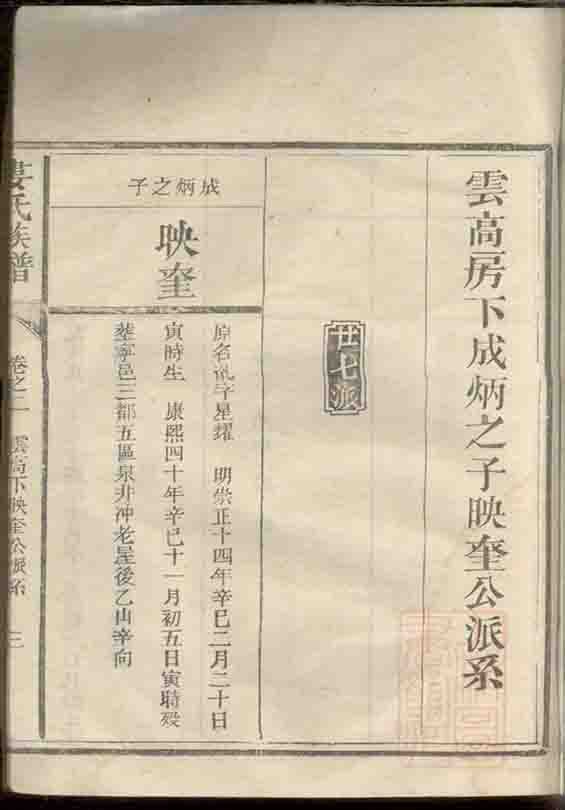 雲高房下成炳之子映奎公派系
廿七派
成炳之子
映奎
原名 字星耀 明崇正十四年辛巳二月二十日
寅時生 康熙四十年辛巳十一月初五日寅時殁
塟寧邑三都五區泉井冲老屋後乙山辛向
姜氏族譜
卷之二 雲高下映奎公派系 三